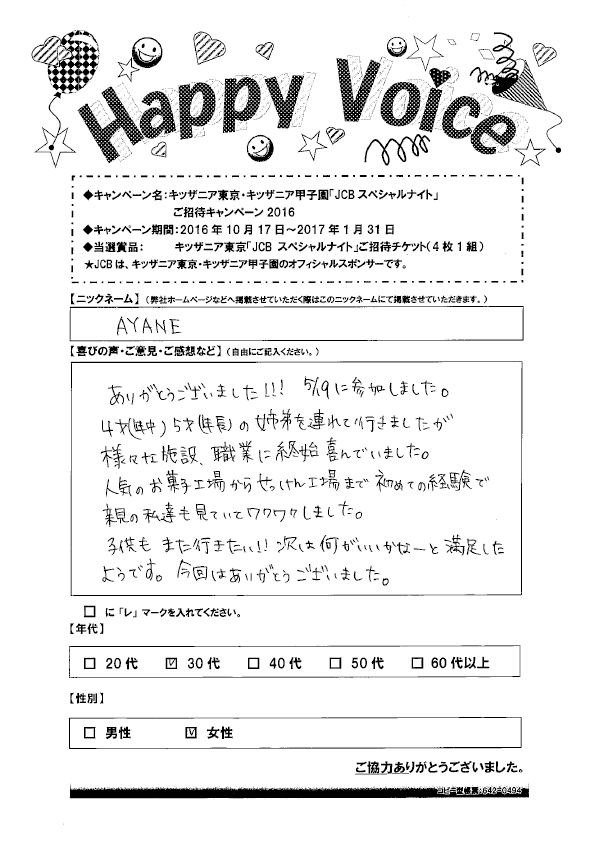 Happy Voice
◆キャンペーン名:キッザニア東京・キッザニア甲子園「JCBスペシャルナイト」
ご招待キャンペーン2016
◆キャンペーン期間:2016年10月17日~2017年1月31日
◆当選賞品: キッザニア東京「JCB スペシャルナイト」ご招待チケット(4枚1組)
★JCBは、キッザニア東京・キッザニア甲子園のオフィシャルスポンサーです。
【ニックネーム】(弊社ホームページなどへ掲載させていただく際はこのニックネームにて掲載させていただきます。)
AYANE
【喜びの声・ご意見・ご感想など】(自由にご記入ください。)
ありがとうございました!!! 5/19に参加しました。
4才(年中) 5才(年長)の姉弟を連れて行きましたが
様々な施設、職業に終始喜んでいました。
人気のお菓子工場からせっけん工場まで初めての経験で
親の私達も見ていてワクワクしました。
子供もまた行きたい!!次は何がいいかなーと満足した
ようです。今回はありがとうございました。
□に「レ」マークを入れてください。
【年代】
□ 20代 ☑ 30代 □ 40代 □ 50代 □ 60代以上
【性別】
□ 男性 ☑ 女性
ご協力ありがとうございました。
コピー型帳票:642-0494